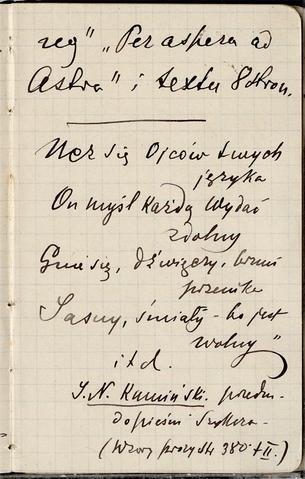 reg" „Per aspera ad
Astra" i textu 8 stron.
Ucz się Ojców twych
języka
On myśl każdą wydać
zdolny
Gnie się, dźwięczy, brzmi
przenika
Jasny, śmiały - bo jest
wolny"
itd.
J. N. Kamiński. przedm-
do pieśni Szyllera-
(Wzory prozy str 380 t II.)